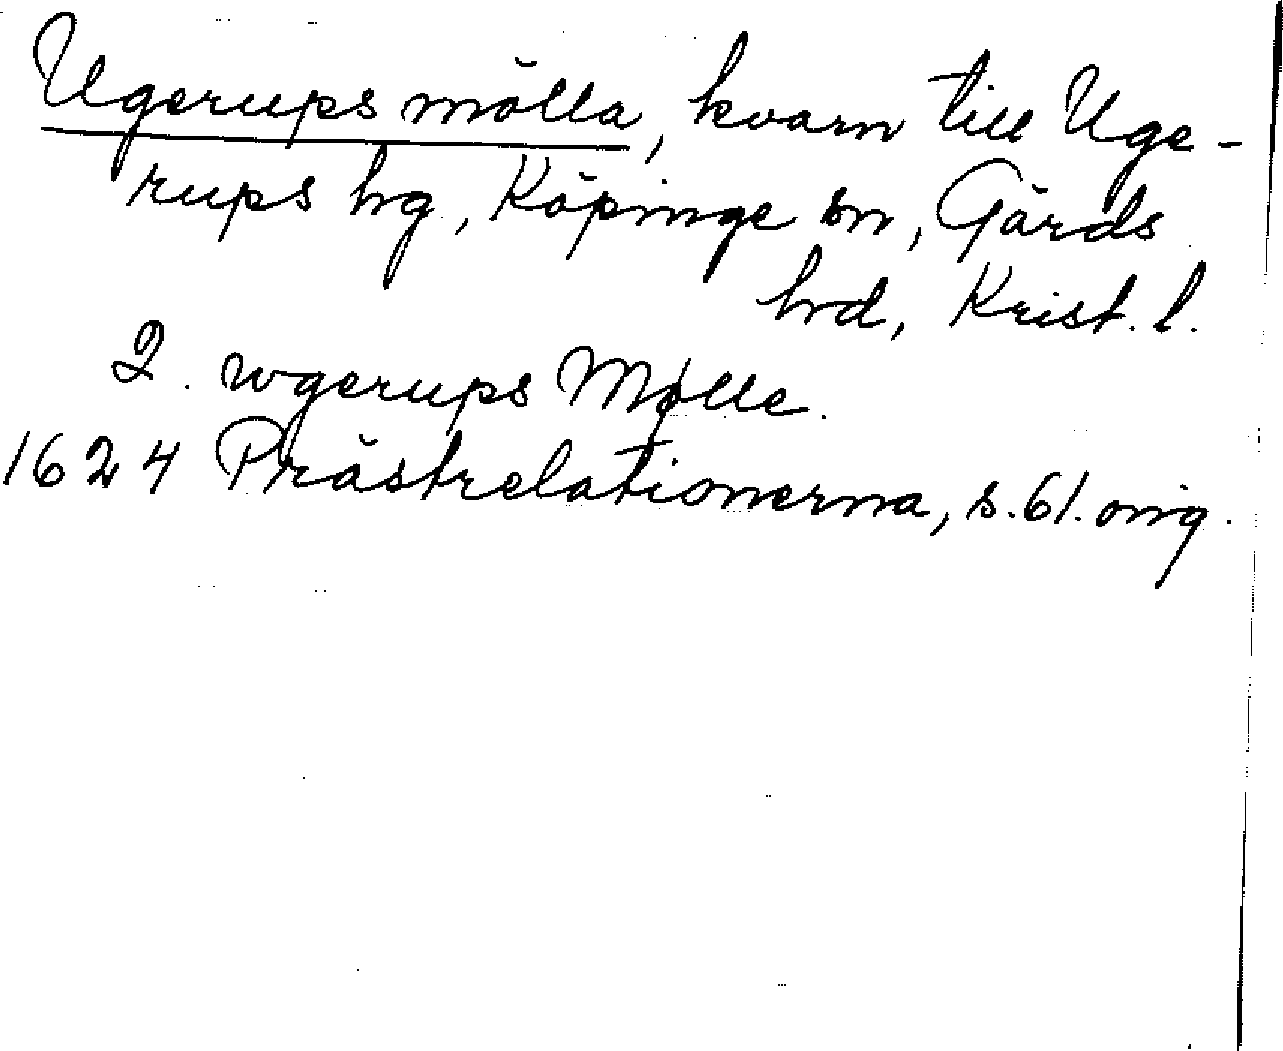 Ugerups mölla, kvarn till Uge-
rups hg, Köpinge sn, Gärds
hrd, Krist. l.
2. wgerups Mølle.
1624 Prästrelationerna, s. 61. orig.